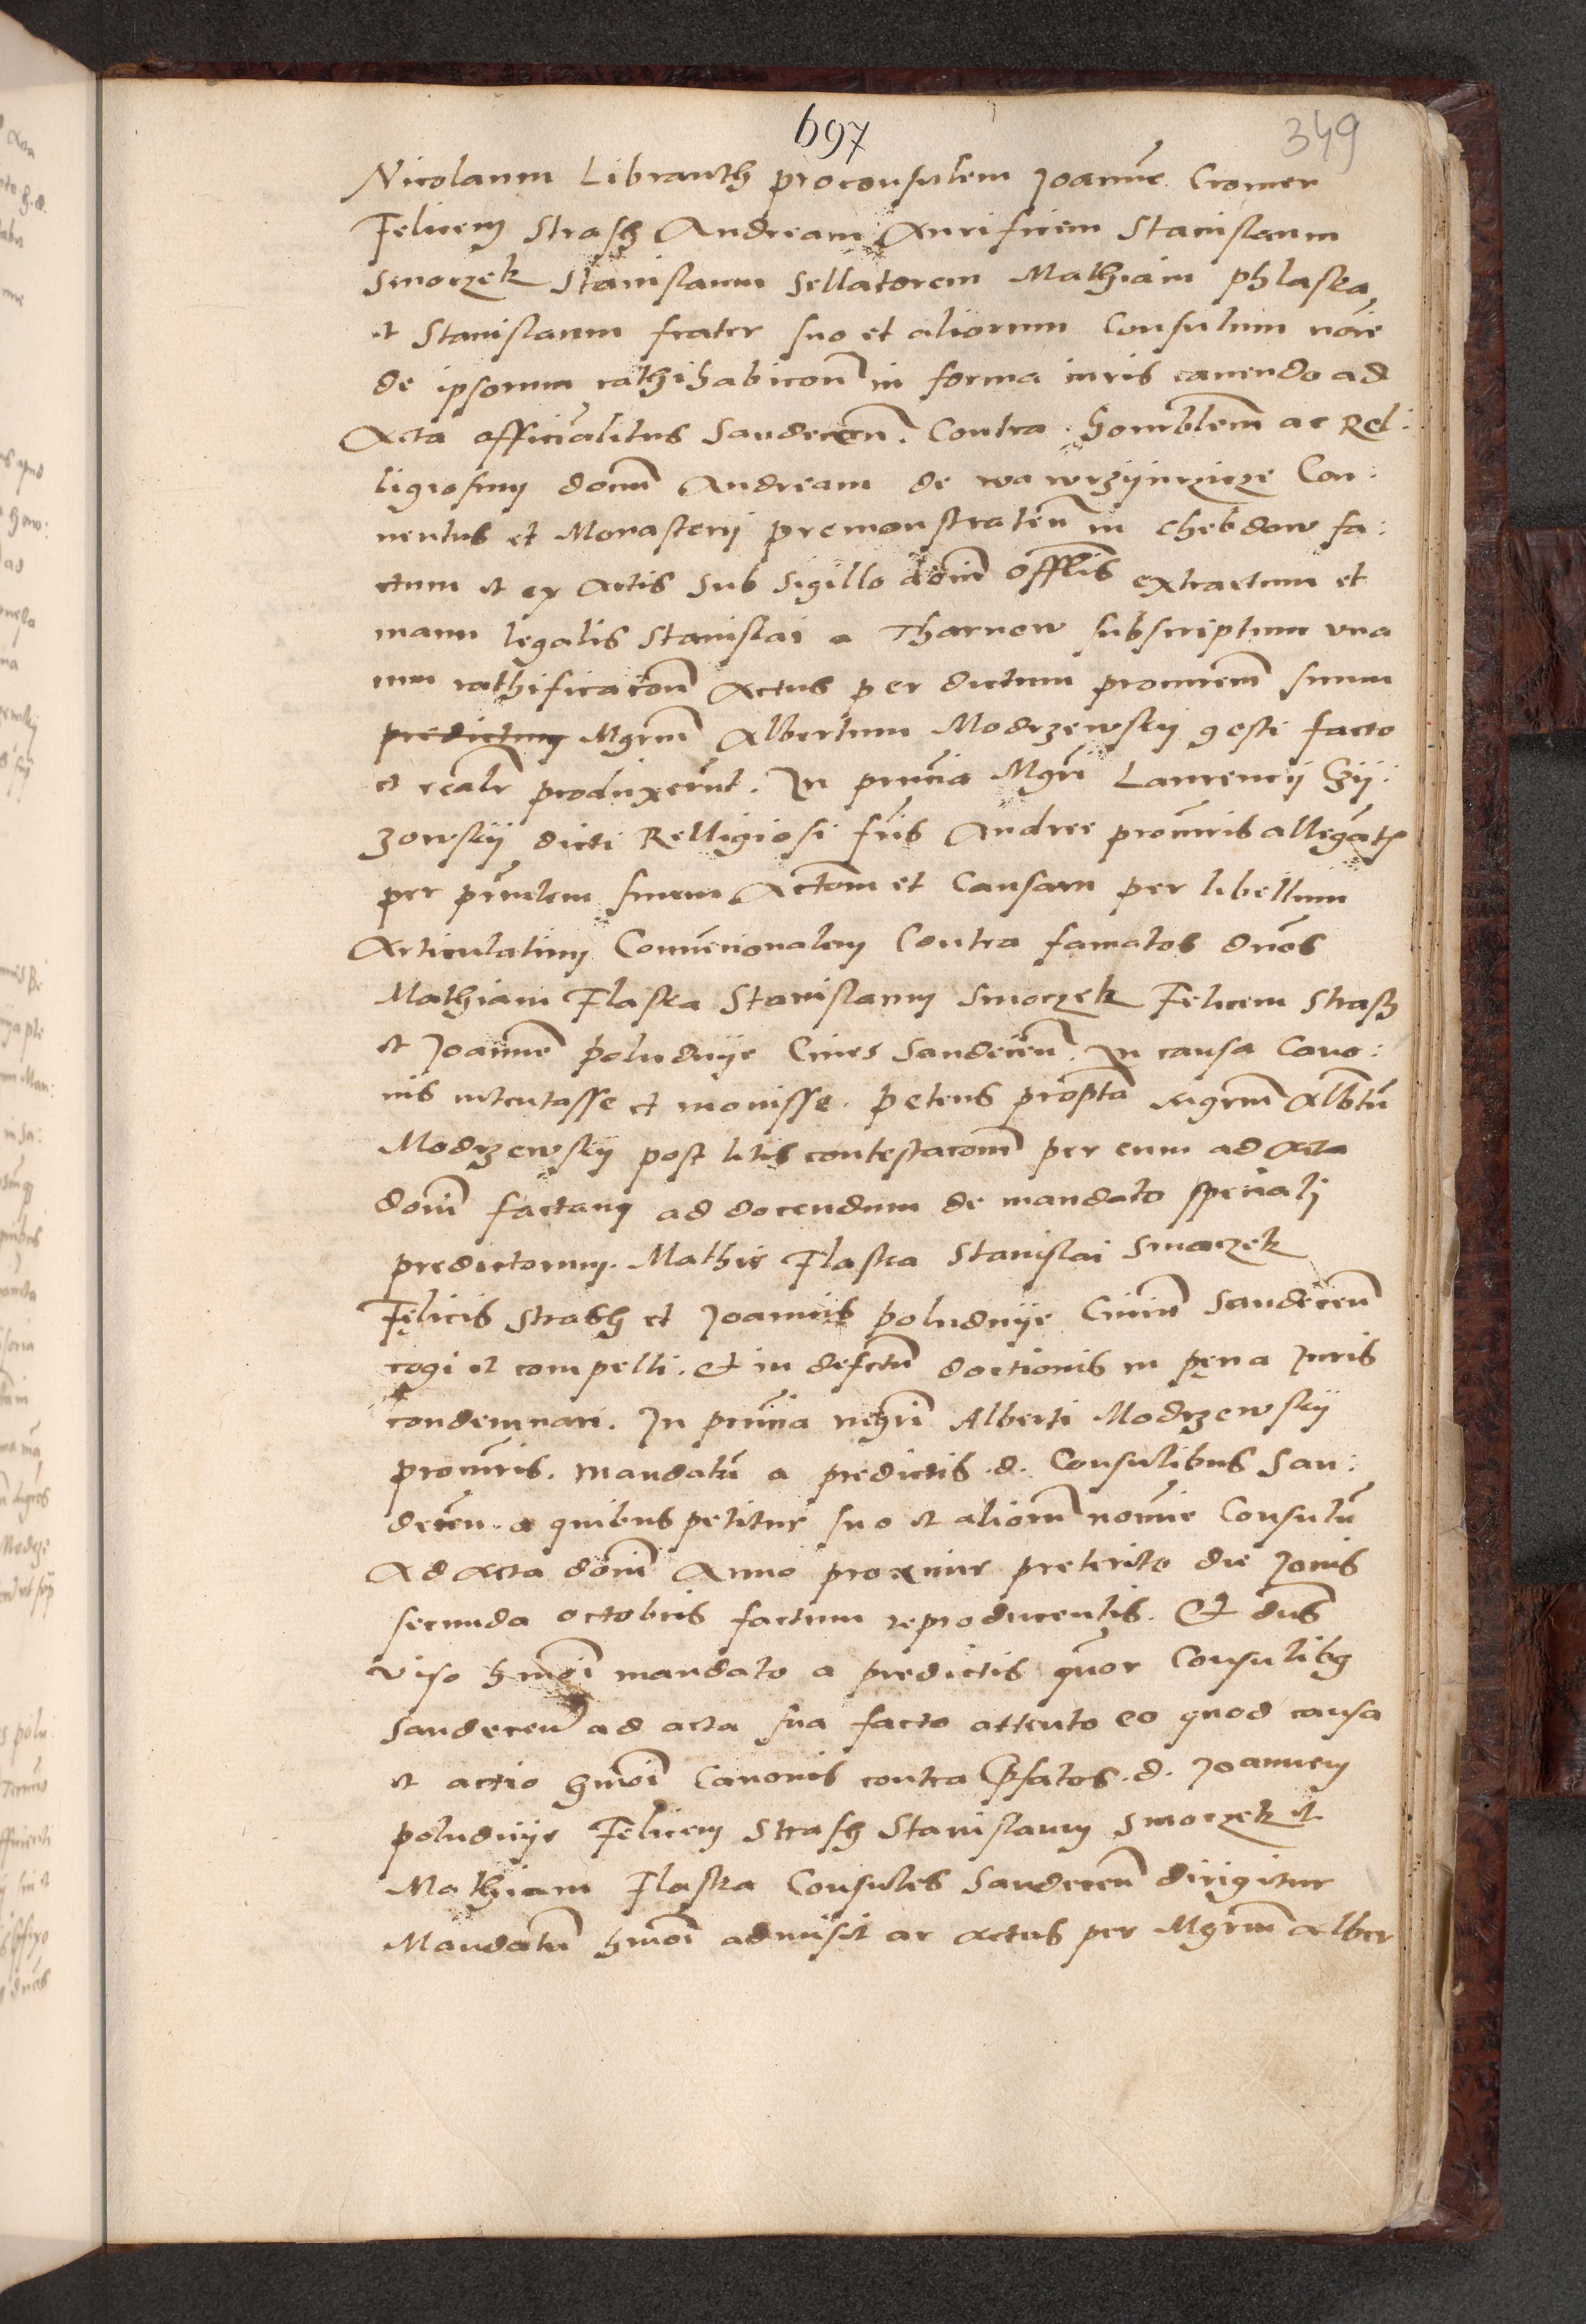 697
349
Nicolaum Libranth proconsulem Joannē Cromer
Felicem Strasz Andream Aurificem Stanislaum
Smorzek Stanislaum Sellatorem Mathiam phlaska,
et Stanislaum frater suo et aliorum Consulum noīe
de ipsorum rathihabicoñ in forma iuris cavendo ad
Acta officialitus Sandeceñ. Contra honorblem̄ ac Rel:
ligiosum domn̄ Andream de wawrzyinczicze Con:
ventus et Monasterij premonstrateñ in Chebdow fa:
ctum et ex Actis sub sigillo domī offlis extractum et
manu legalis Stanislai a Tharnow subscriptum una
cum rathificatoñ Actus per dictum procurem̄ suum
predictum Mgrum̄ Albertum Modrzewsky gesti facto
et realr̄ produxerūt. In prnīa Mgrī Laurencij Gzy:
zowskij dicti Relligiosi frīs Andree procūris allegāt
per prīncīpalem suum Actom et Causam per libellum
Articulatum Convēncionalem Contra famatos dnōs
Mathiam Flaska Stanislaum Smorzek Felicem Strasz
et Joannē poludnije Cives Sandeceñ. In causa Cano:
nis intentasse et movisse. petens proptā Mgrum̄ Albtū
Modrzewsky post litis contestacom̄ per eum ad Acta
domī factam ad docendum de mandato speciali
predictorum. Mathie Flaska Stanislai Smorzek
Felicis Strasz et Joannis poludnije Civiū Sandeceñ
cogi et compelli. Et in defctū doctionis in pęna Juris
condemnari. In prnīa Mgrī Alberti Modrzewsky
procūris. mandatū a predictis .d. Consulibus San:
deceñ. a quibus petitur suo et aliorū nomīe Consulū
Ad Acta domī Anno proxime preterito die Jovis
secunda octobris factum reproducentis. Et dns̄
viso hmōi mandato a predictis quor Consulibq
Sandeceñ ad acta sua facto attento eo quod causa
et actio hmōi Canonis contra pfatos .d. Joannem
poludnije Felicem Strasz Stanislaum Smorzek et
Mathiam Flaska Consules Sandeceñ dirigitur
Mandatū hmōi admisit ac Actus per Mgrum̄ Alber